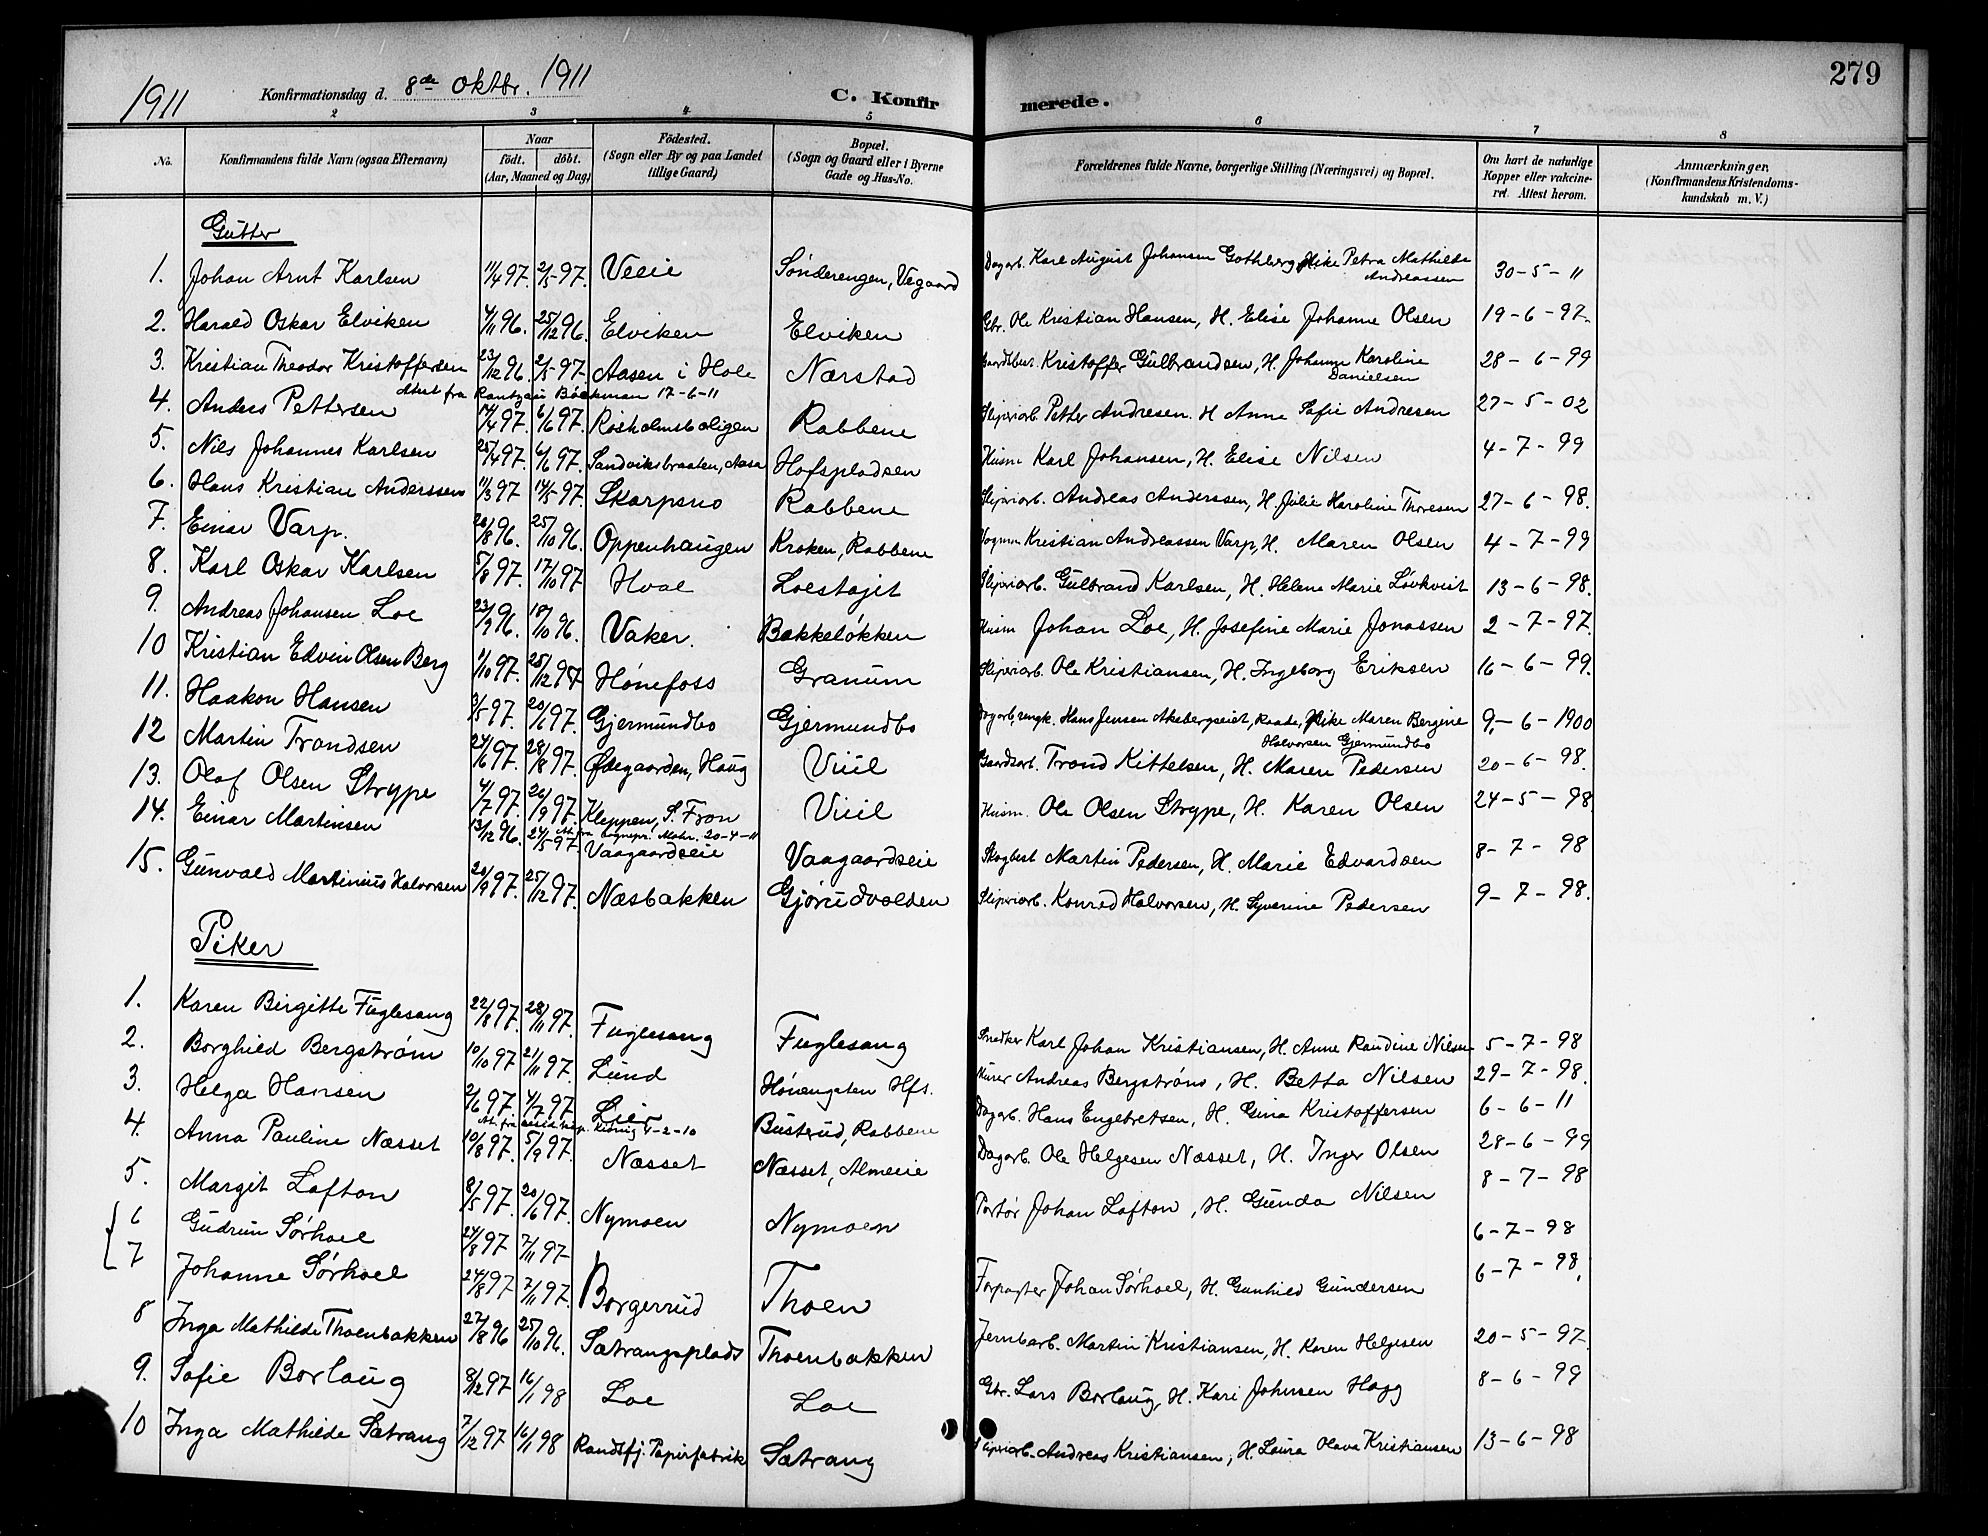 279
1911 Konfirmationsdag d. 8de Oktbr. 1911 C. Konfirmerede.
2 3 4 5 6 7 8
No. Konfirmandens fulde Navn (ogsaa Efternavn) Naar født. døbt. (Aar, Maaned og Dag) Fødested. (Sogn eller By og paa Landet tillige Gaard) Bopæl. (Sogn og Gaard eller i Byerne Gade og Hus-No. Forældrenes fulde Navne, borgerlige Stilling (Næringsvei) og Bopæl. Om havt de naturlige Kopper eller vakcineret. Attest herom. Anmærkninger. (Konfirmandens Kristendomskundskab m. V.)
Gutter
1. Johan Arnt Karlsen 11/4 97. 2/5-97. Veeie Sønderengen, Vegaard Dagarb. Karl August Johansen Gothberg, Pike Petra Mathilde Andreassen 30-5-11
2. Harald Oskar Elviken 4/11 96. 25/12 96. Elviken Elviken Gbr. Ole Kristian Hansen, H. Elise Johanne Olsen 19-6-97.
3. Kristian Theodor Kristoffersen 23/12 96. 2/5-97. Aasen i Hole Nærstad Kristoffer Gulbrandsen, H. Johanne Karoline Danielsen 28-6-99
Attest fra Rantzau Bøckman 17-6-11
4. Anders Pettersen 14/4 97. 6/6 97. Rosholmsboligen Rabbene Sliperiarb. Petter Andresen. H Anne Sofie Andresen 27-5-02
5. Nils Johannes Karlsen 25/4 97. 6/6 97. Sandviksbraaten, Aasa Hofspladsen Husm Karl Johansen, H. Elise Nilsen 4-7-99
6. Hans Kristian Anderssen 11/3 97 14/5-97. Skarpsno Rabbene Sliperiarb. Andreas Anderssen, H. Julie Karoline Thoresen 27-6-98.
7. Einar Varp. 26/8 96. 25/10 96. Oppenhaugen Kroken, Rabbene Vognm Kristian Andreassen Varp, H. Maren Olsen 4-7-99
8. Karl Oskar Karlsen 5/8 97. 17/10 97 Hval Loeståjet Sliperiarb. Gulbrand Karlsen, H. Helene Marie Løvkvist 13-6-98.
9. Andreas Johansen Loe 23/9 96. 18/10 96. Vaker. Bakkeløkken Husm Johan Loe, H. Josefine Marie Jonassen 2-7-97.
10 Kristian Edvin Olsen Berg 1/10 97. 25/12 97 Hønefoss Granum Sliperiarb. Ole Kristiansen, H. Ingeborg Eriksen 16-6-99.
11. Haakon Hansen 3/5-97. 20/6 97. Gjermundbo Gjermundbo Dagarb, ungk. Hans Jensen Aksbergseiet, Raade, Pike Maren Bergine Halvorsen Gjermundbo 9-6-1900
12 Martin Trondsen 24/6 97. 28/8 97. Ødegaarden, Haug Viul Gaardsarb. Trond Kittelsen, H. Maren Pedersen 20-6-98.
13. Olaf Olsen Strype 4/7 97. 26/9 97. Kleppen, S. Fron Viul Husm. Ole Olsen Strype, H. Karen Olsen 24-5-98
At. fra sognepr. Mohr. 20-4-11
14. Einar Martinsen 13/12 96. 24/5-97. Vaagaardseie Vaagaardseie Skogbest Martin Pedersen, H. Marie Edvardsen 8-7-98
15. Gunvald Martinius Halvorsen 20/9 97. 25/12 97. Næsbakken Gjørudvolden Sliperiarb. Konrad Halvorsen, H. Syverine Pedersen 9-7-98.
Piker
1. Karen Birgitte Fuglesang 22/8 97. 28/11 97. Fuglesang Fuglesang Snedker Karl Johan Kristiansen, H. Anne Randine Nilsen 5-7-98
2. Borghild Bergstrøm 10/10 97 21/11 97. Lund Hønengaten Hfs. Murer Andreas Bergstrøm, H. Betta Nilsen 29-7-98.
3. Helga Hansen 2/6 97. 4/7 97. Lier Busterud, Rabbene Dagarb. Hans Engebretsen, H. Gina Kristoffersen 6-6-11
4. Anna Pauline Næsset 10/8 97. 5/9 97. Næsset Næsset, Almeie Dagarb. Ole Helgesen Næsset, H. Inger Olsen 28-6-99
5. Margit Lofton 8/5 97. 20/6 97. Nymoen Nymoen Portør Johan Lofton, H. Gunda Nilsen 8-7-98
6 Gudrun Sørhoel 24/8 97 7/11 97. 6-7-98
7 Johanne Sørhoel 24/8 97 7/11 97. Borgerrud Thoen Forpagter Johan Sørhoel, H. Gunhild Gundersen 6-7-98.
8 Inga Mathilde Thoenbakken 27/8 96 25/10 96. Sætrangsplads Thoenbakken Jernbarb. Martin Kristiansen, H. Karen Helgesen 20-5-97.
9. Sofie Borlaug 8/12 97 16/1 98 Loe Loe Gbr. Lars Borlaug, H. Kari Johnsen Hagg 8-6-99
10 Inga Mathilde Sætrang 7/12 97 16/1 98 Randsfj. Papirfabrik Sætrang Sliperiarb. Andreas Kristiansen, H. Laura Olava Kristiansen 13-6-98